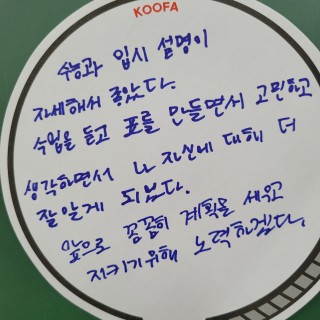 KOOFA
수능과 입시 설명이
자세해서 좋았다.
수업을 듣고 표를 만들면서 고민하고
생각하면서 나 자신에 대해 더
잘 알게 되었다.
앞으로 꼼꼼히 계획을 세우고
지키기위해 노력하겠다.